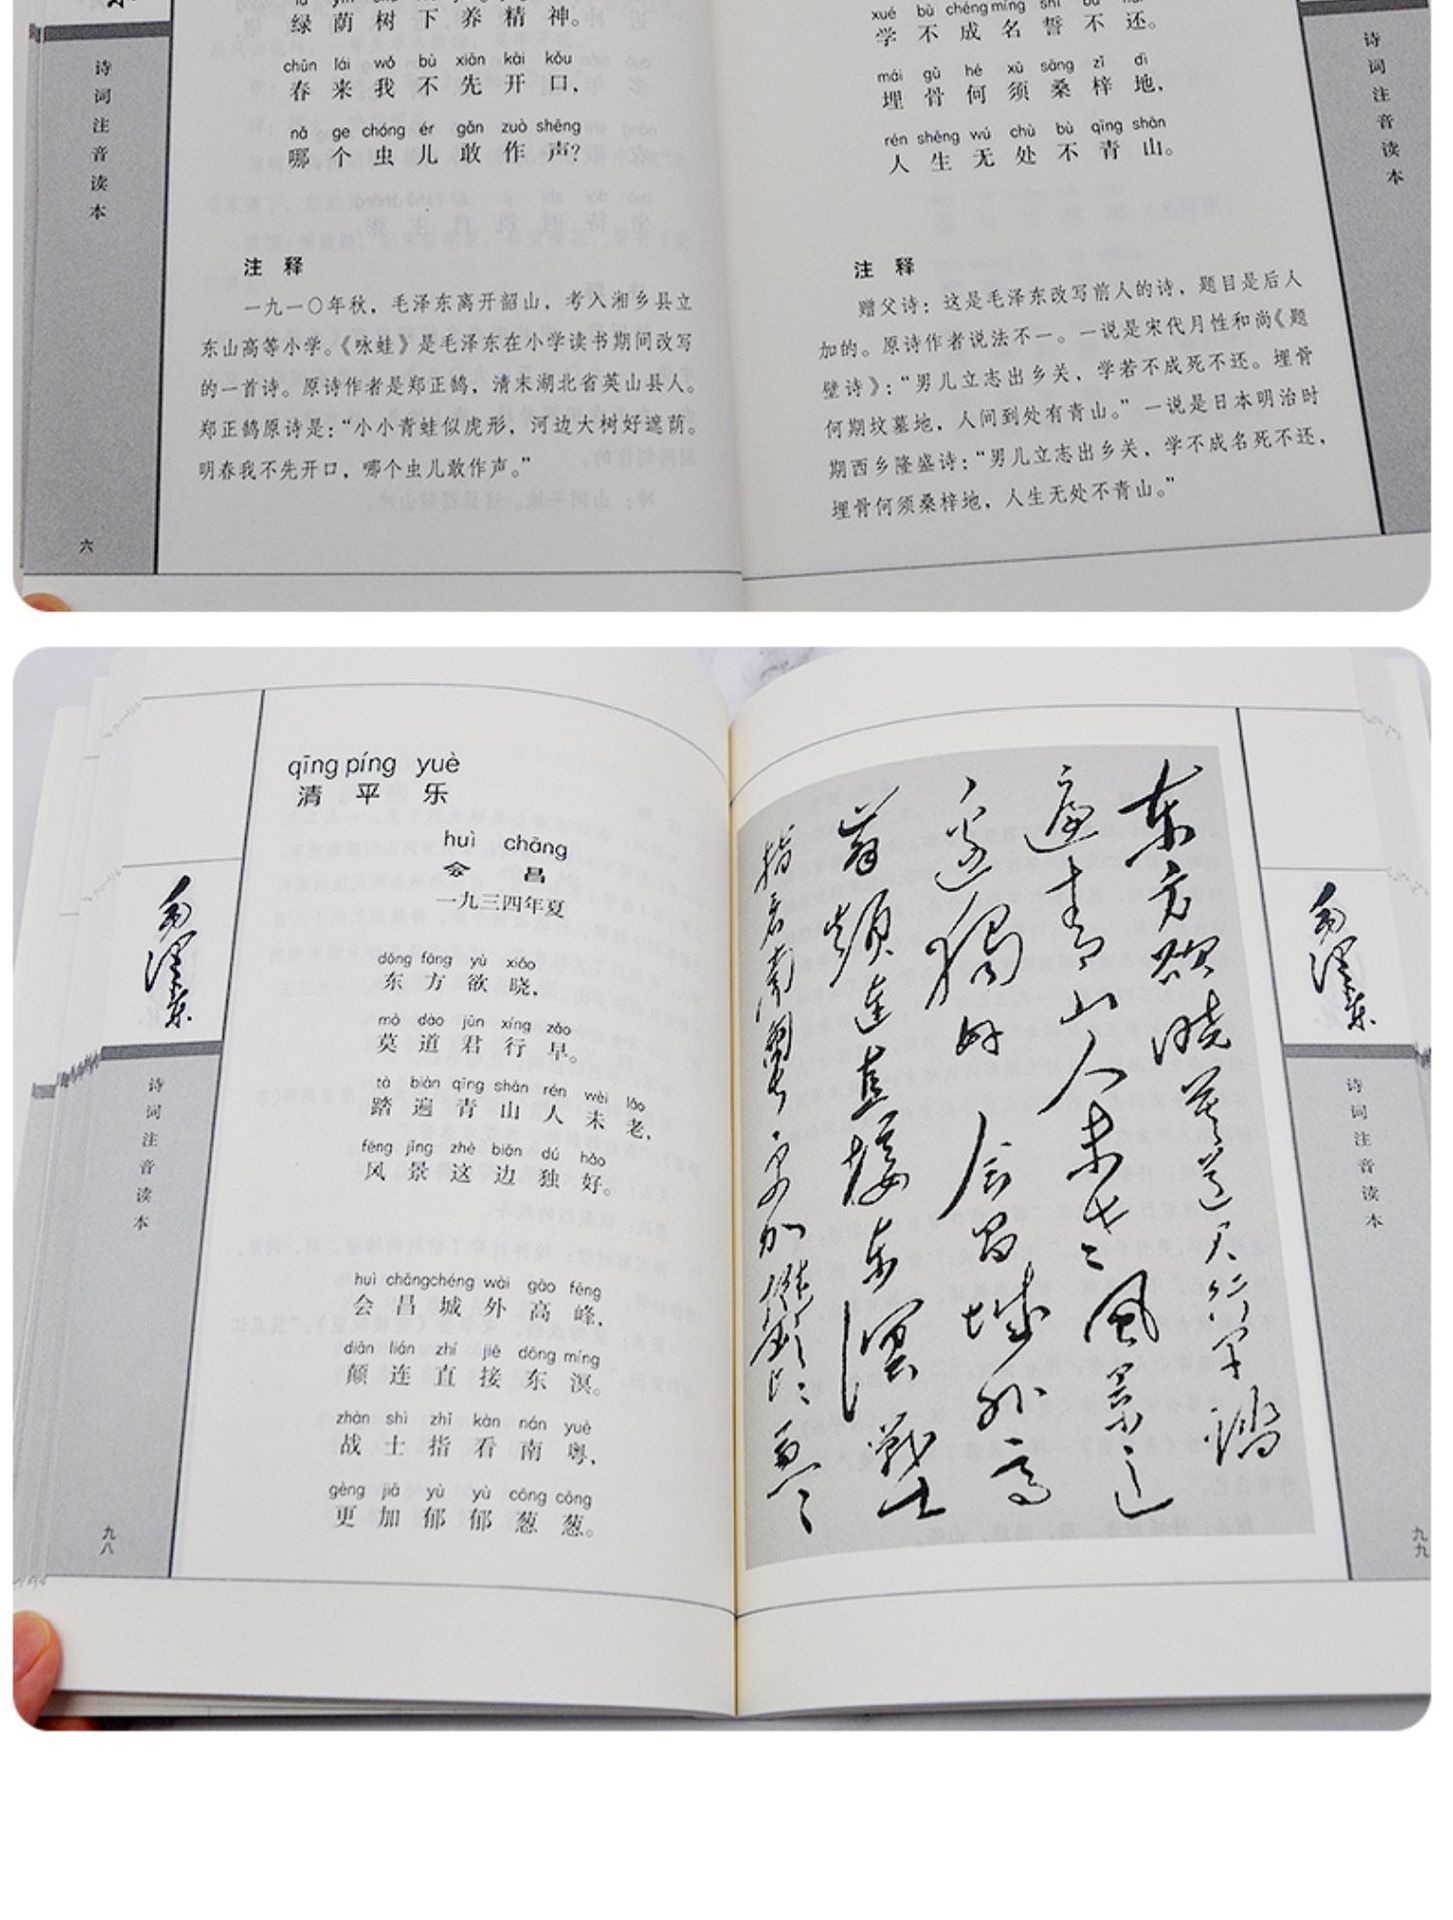 绿荫树下养精神。
chūn lái wǒ bù xiān kāi kǒu
春来我不先开口，
nǎ ge chóng ér gǎn zuò shēng
哪个虫儿敢作声？
注释
一九一〇年秋，毛泽东离开韶山，考入湘乡县立
东山高等小学。《咏蛙》是毛泽东在小学读书期间改写
的一首诗。原诗作者是郑正鹄，清末湖北省英山县人。
郑正鹄原诗是：“小小青蛙似虎形，河边大树好遮荫。
明春我不先开口，哪个虫儿敢作声。”
诗词注音读本
六
xué bù chéng míng shì bù
学不成名誓不还。
mái gǔ hé xū sāng zǐ dì
埋骨何须桑梓地，
rén shēng wú chù bù qīng shān
人生无处不青山。
注释
赠父诗：这是毛泽东改写前人的诗，题目是后人
加的。原诗作者说法不一。一说是宋代月性和尚《题
壁诗》：“男儿立志出乡关，学若不成死不还。埋骨
何期坟墓地，人间到处有青山。”一说是日本明治时
期西乡隆盛诗：“男儿立志出乡关，学不成名死不还，
埋骨何须桑梓地，人生无处不青山。”
诗词注音读本
qīng píng yuè
清平乐
huì chāng
会昌
一九三四年夏
dōng fāng yù xiǎo
东方欲晓，
mò dào jūn xíng zǎo
莫道君行早。
tà biàn qīng shān rén wèi lǎo
踏遍青山人未老，
fēng jǐng zhè biān dú hǎo
风景这边独好。
huì chāng chéng wài gāo fēng
会昌城外高峰，
diān lián zhí jiē dōng míng
颠连直接东溟。
zhàn shì zhǐ kàn nán yuè
战士指看南粤，
gèng jiā yù yù cōng cōng
更加郁郁葱葱。
毛泽东
诗词注音读本
九八
东方欲晓莫道君行早踏
遍青山人未老风景这
边独好会昌城外高
峰颠连直接东溟战士
指看南粤更加郁郁葱葱
毛泽东
诗词注音读本
九九